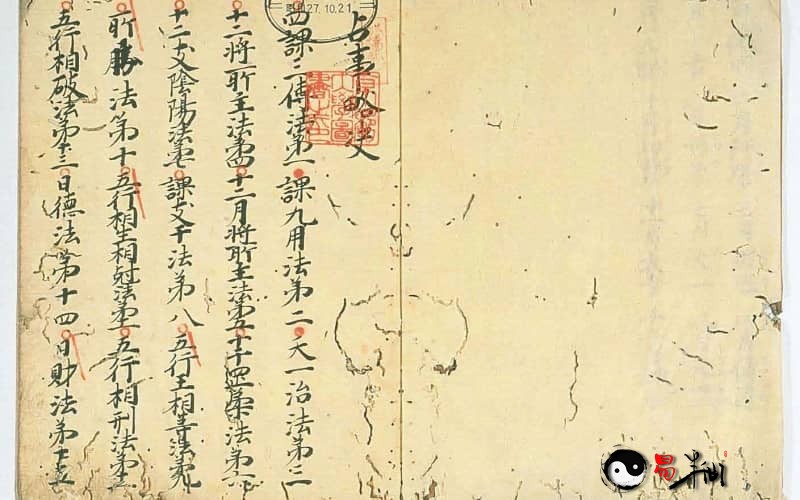 占事略决
四課三傳法第一 課九用法第二 天一治法第三
十二將所主法第四 十二月將所主法第五 十干罡藥法第六
十二支陰陽法第七 課支干法第八 五行王相等法第九
所勝法第十 五行相生相尅法第十一 五行相刑法第十二
五行相破法第十三 日德法第十四 日財法第十五
27.10.21
易